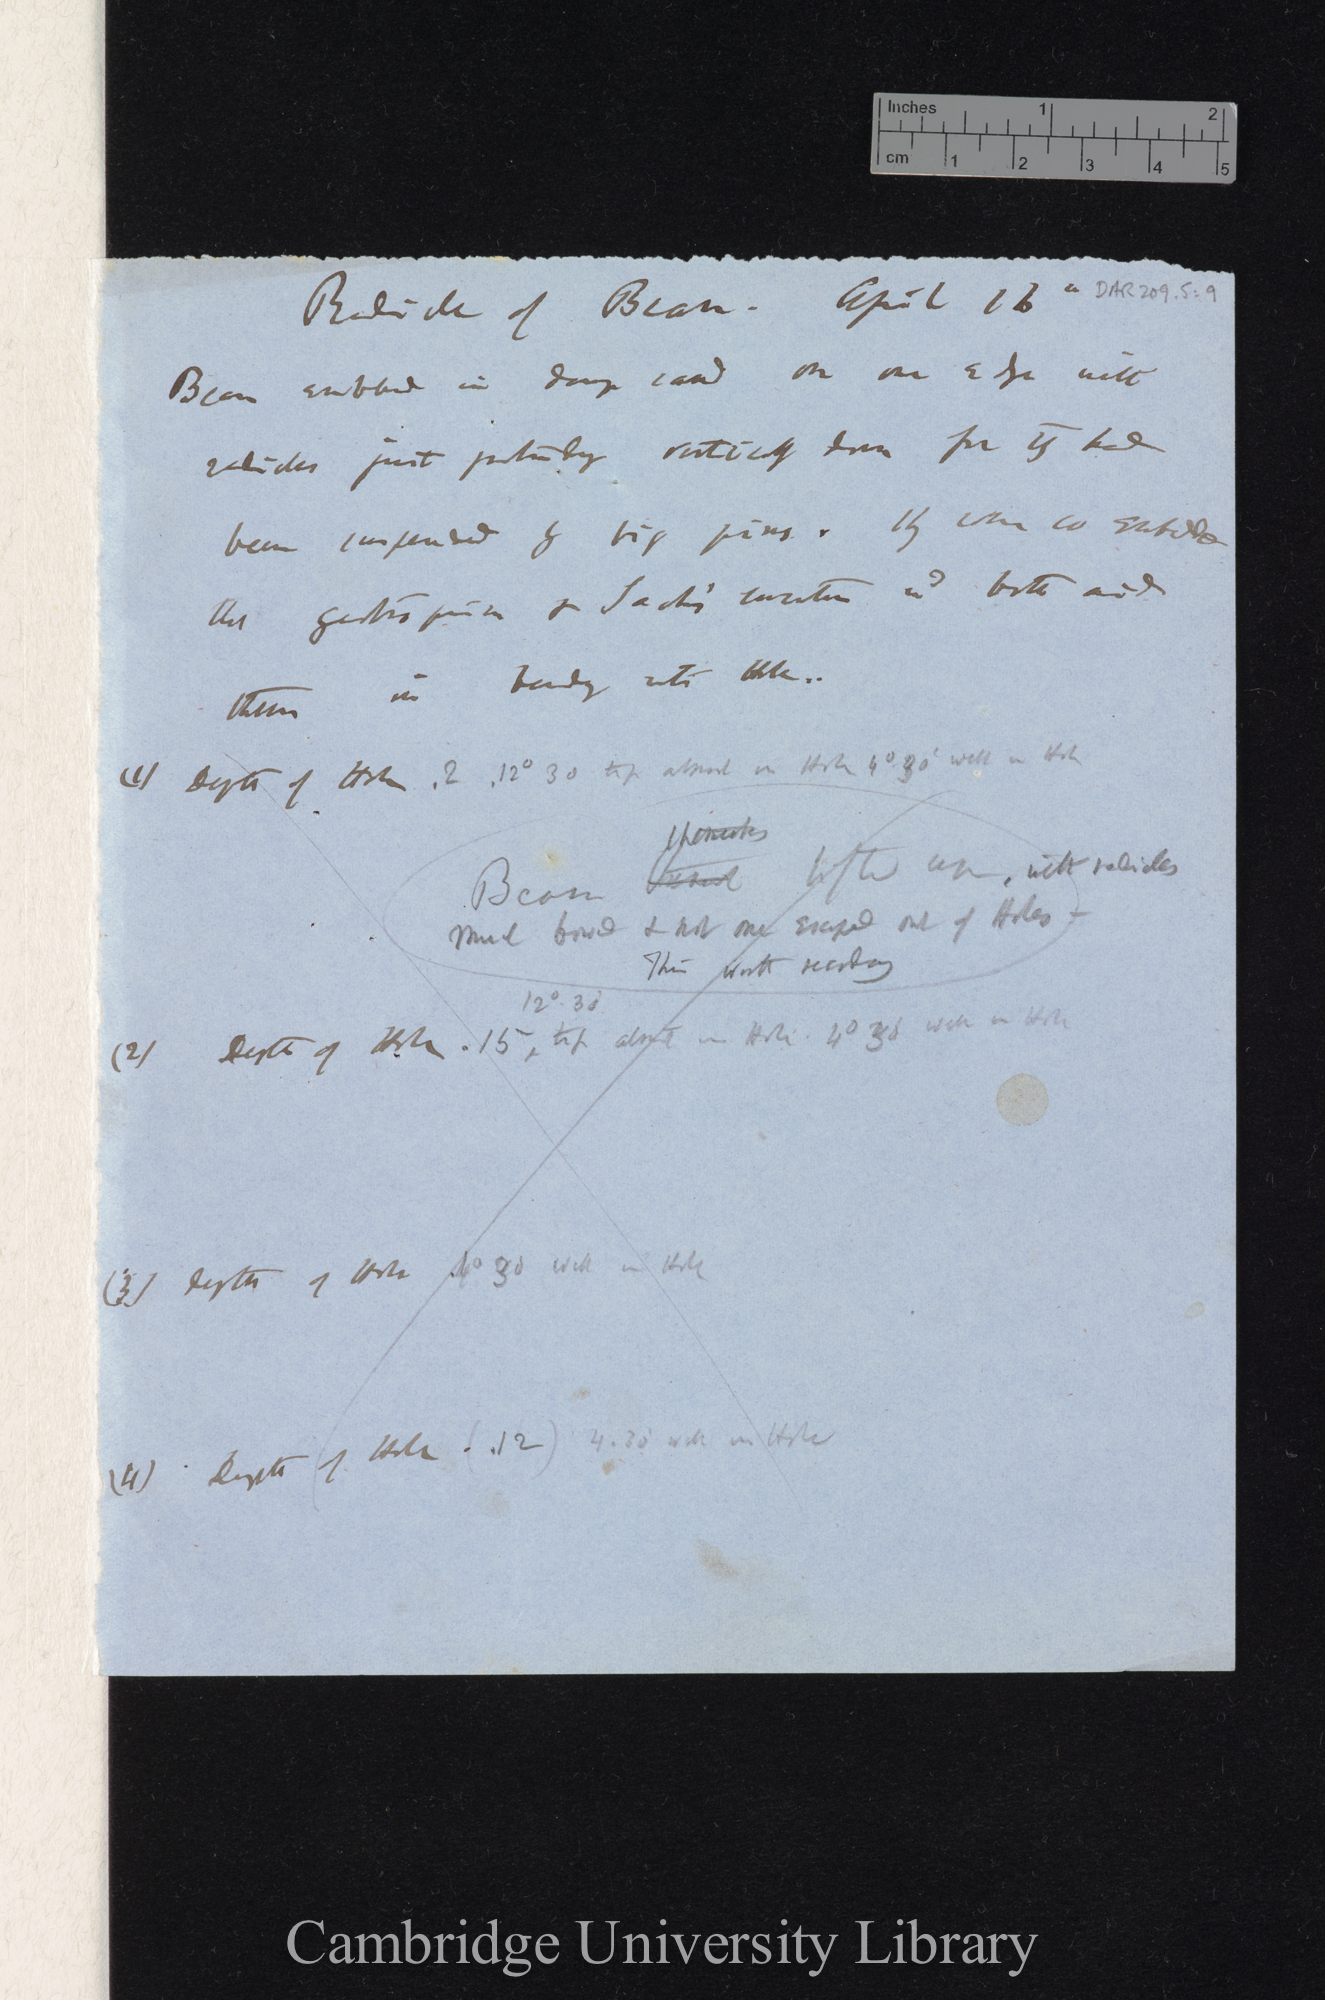 Inches 1 2
cm 1 2 3 4 5
Radicle of Bean - April 16th
DAR 209.5:9
Bean embedded in damp sand on one edge with
radicles just protruding vertically down for they had
been suspended by big pins. They were so embedded
that geotropism & Sachs' curvature wd both aid
them in bending into Hole..
(1) Depth of Hole .2 .12° 30 tip almost in Hole 4° 30' well in Hole
Bean lifted up, with radicles
much bowed & not one escaped out of Holes -
This worth recording
12° 30'
(2) Depth of Hole .15, tip almost in Hole. 4° 30' well in Hole
(3) Depth of Hole 4° 30 well in Hole
(4) Depth of Hole . (.12) 4.30' well in Hole
Cambridge University Library